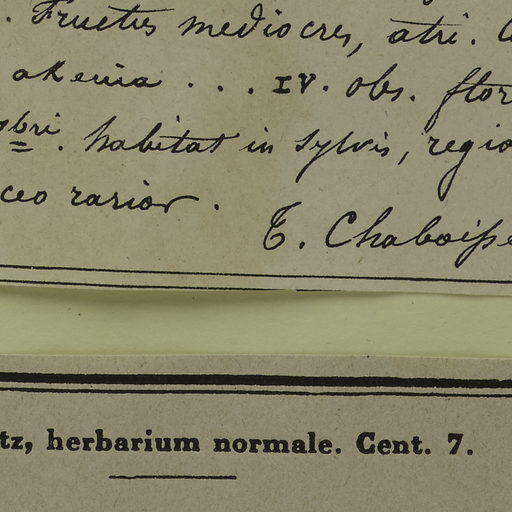 Fructus mediocres, atri.
akenia . . . IV. obs. flor
bri. habitat in sylvis, regio
ceo rarior.
T. Chaboisse
tz, herbarium normale. Cent. 7.